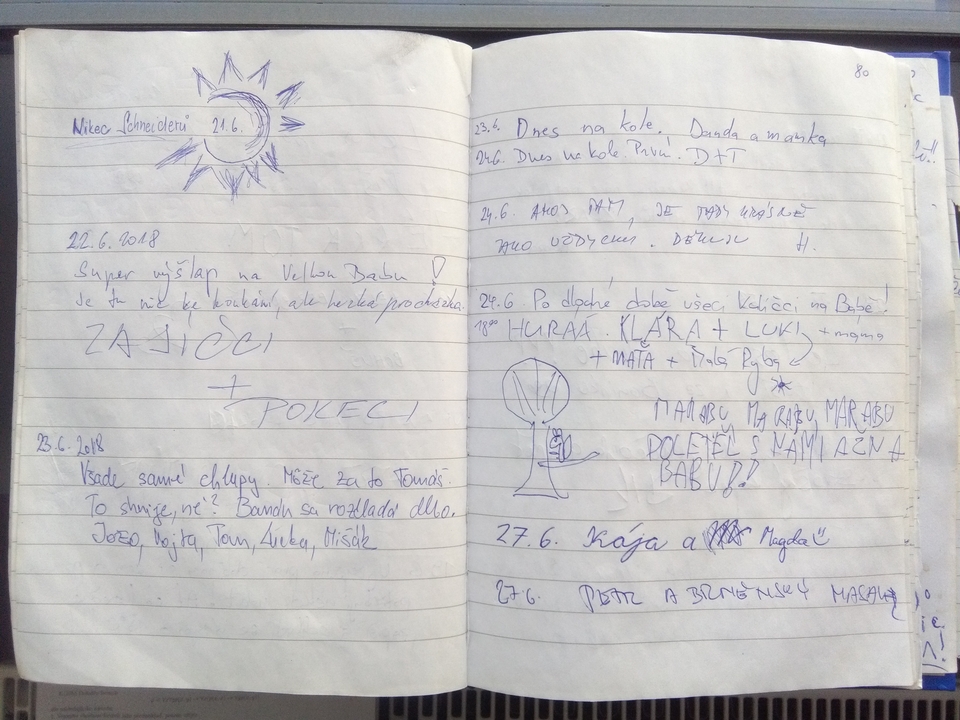 Nikec Schneiderů 21.6.
22.6.2018
Super výšlap na Velkou Babu!
Je tu nic ke koukání, ale hezká procházka.
ZAJÍČCI
+
POKECI
23.6.2018
Všade samé chlupy. Môže za to Tomáš.
To shnije, né? Banán sa rozkladá dlho.
Jozo, Vojta, Tom, Lucka, Mišák
80
23.6. Dnes na kole. Danda a mamka
24.6. Dnes na kole. První. D+T
24.6. AHOJ VÁM, JE TADY KRÁSNĚ
JAKO VŽDYCKY. DĚKUJU H.
24.6. Po dlouhé době všeci Kalíčci na Babě!
18⁰⁰ HURAÁ. KLÁRA + LUKI + mama
+ MAŤA + Malá Ryba
MARABU, MARABU, MARABU
POLETĚL S NÁMI AŽ NA
BABU!!
27.6. Kája a Magda
27.6. PETR A BRNĚNSKÝ MASAKR